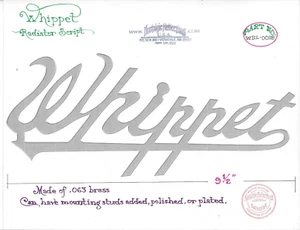 Whippet
Radiator Script
PART NO.
Whippet
9½"
Made of .063 brass
Can have mounting studs added, polished, or plated.